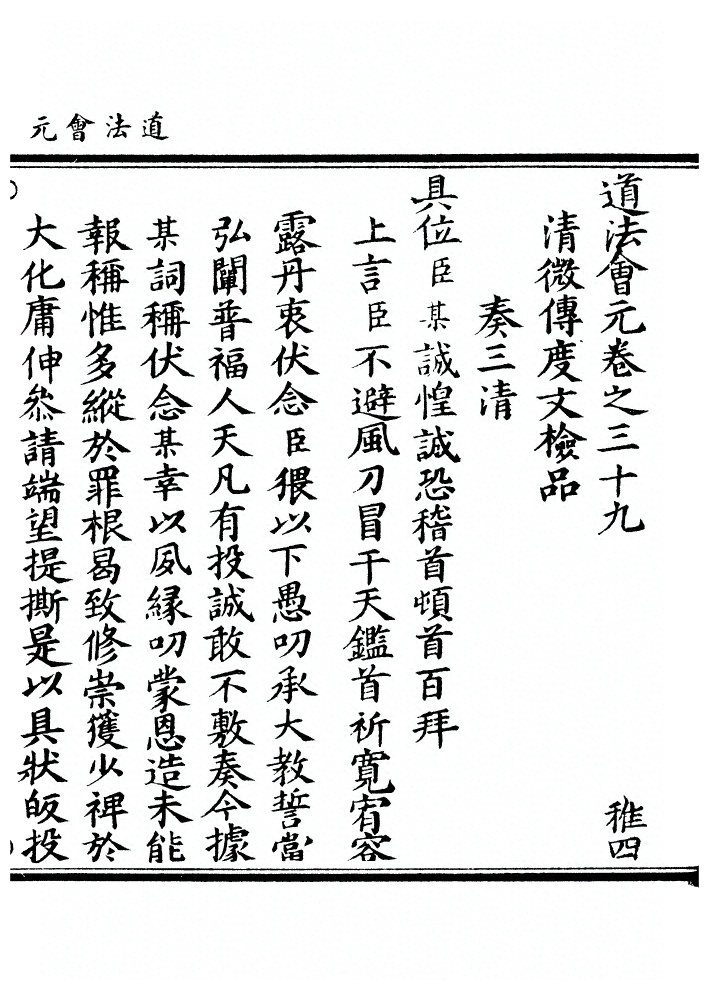 道法會元
道法會元卷之三十九 稚四
清微傳度文檢品
奏三清
具位臣某誠惶誠恐稽首頓首百拜
上言臣不避風刀冒干天鑑首祈寬宥容
露丹衷伏念臣猥以下愚叨承大教誓當
弘闡普福人天凡有投誠敢不敷奏今據
某詞稱伏念某幸以夙緣叨蒙恩造未能
報稱惟多縱於罪根曷致修崇獲少裨於
大化庸伸叅請端望提撕是以具狀皈投